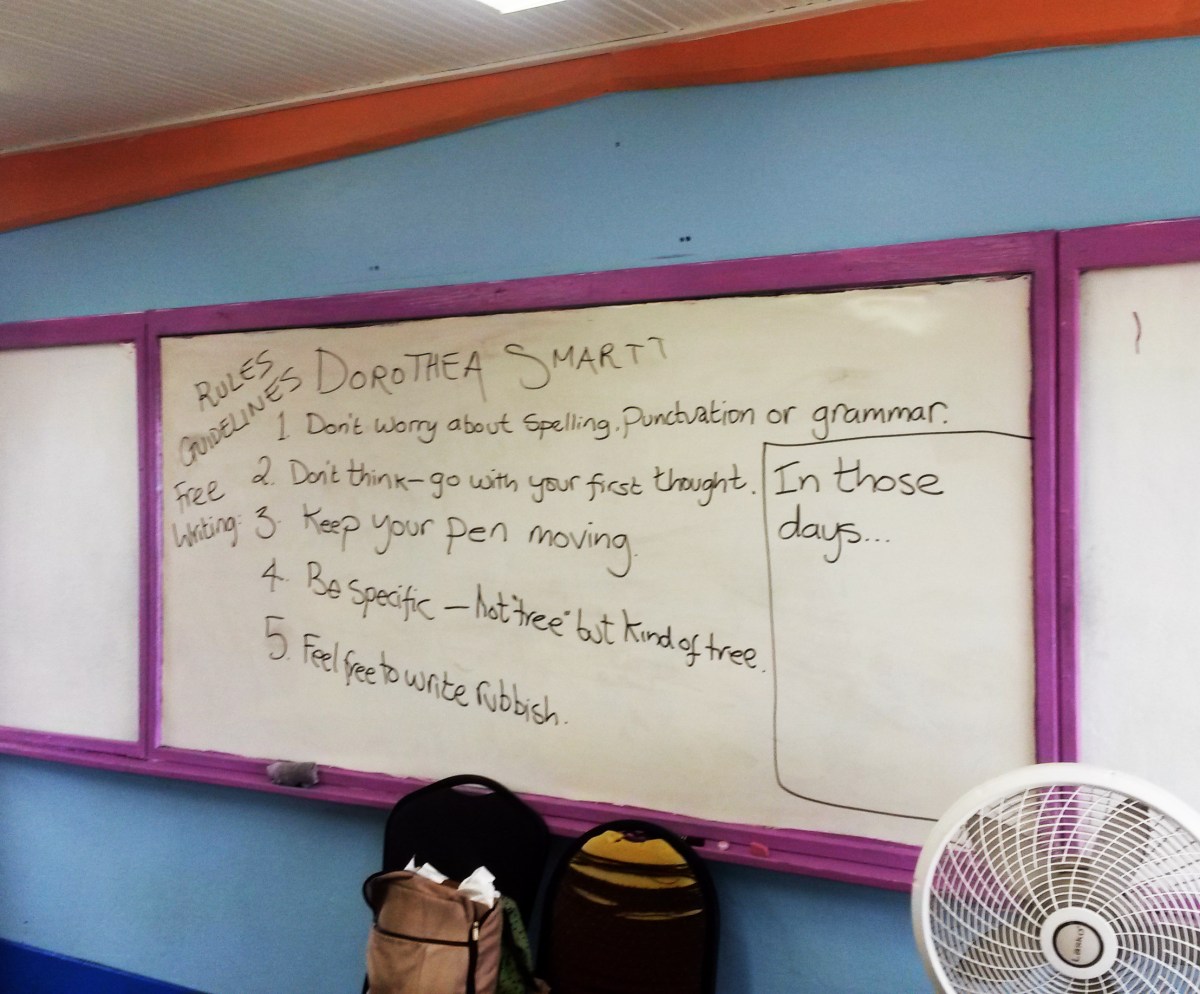 RULES
GUIDELINES
DOROTHEA SMARTT
Free
Writing:
1 Don't worry about Spelling, Punctuation or grammar.
2. Don't think - go with your first thought.
3. Keep your pen moving.
4. Be Specific - not "tree" but kind of tree.
5. Feel free to write rubbish.
In those
days...
Lasko